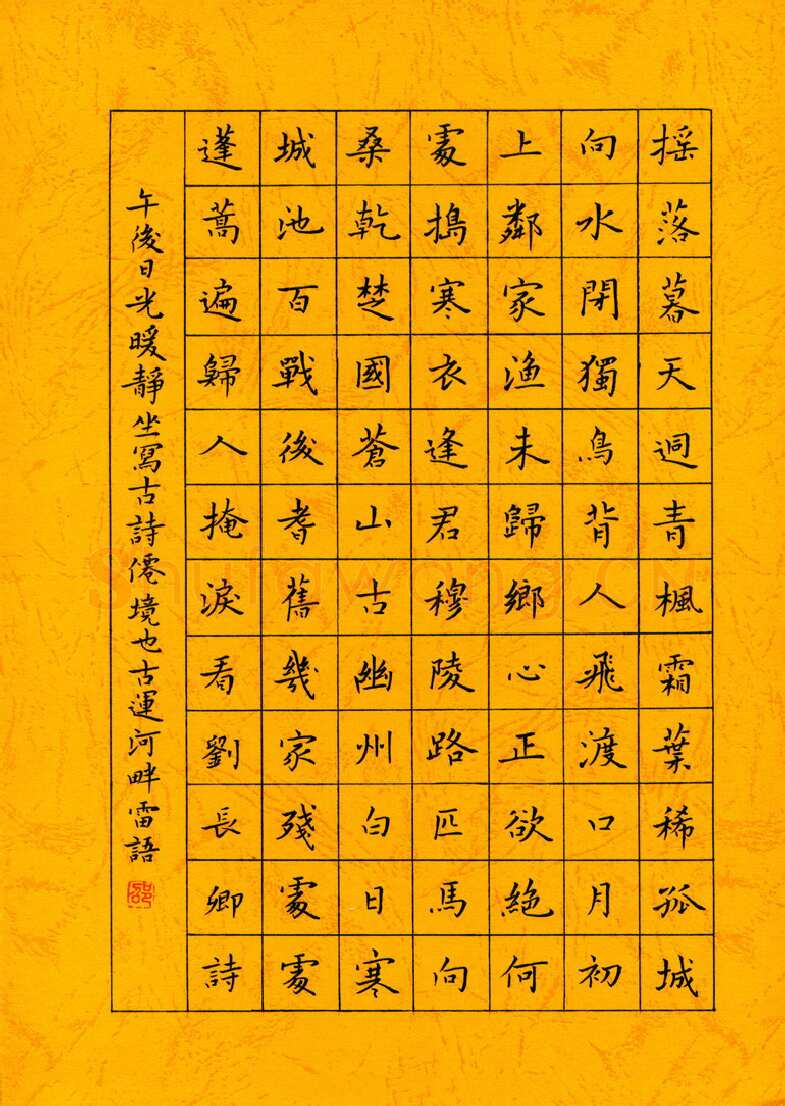 摇落暮天迥青楓霜葉稀孤城
向水閉獨鳥背人飛渡口月初
上鄰家漁未歸鄉心正欲絶何
處搗寒衣逢君穆陵路匹馬向
桑乾楚國蒼山古幽州白日寒
城池百戰後耆舊幾家殘處處
蓬蒿遍歸人掩淚看劉長卿詩
午後日光暖靜坐寫古詩僊境也古運河畔雷語
Shufawang.CN